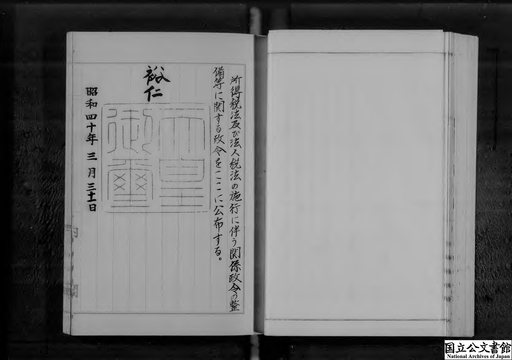 所得税法及び法人税法の施行に伴う関係政令の整
備等に関する政令をここに公布する。
裕仁
天皇
御璽
昭和四十年三月三十一日
国立公文書館
National Archives of Japan